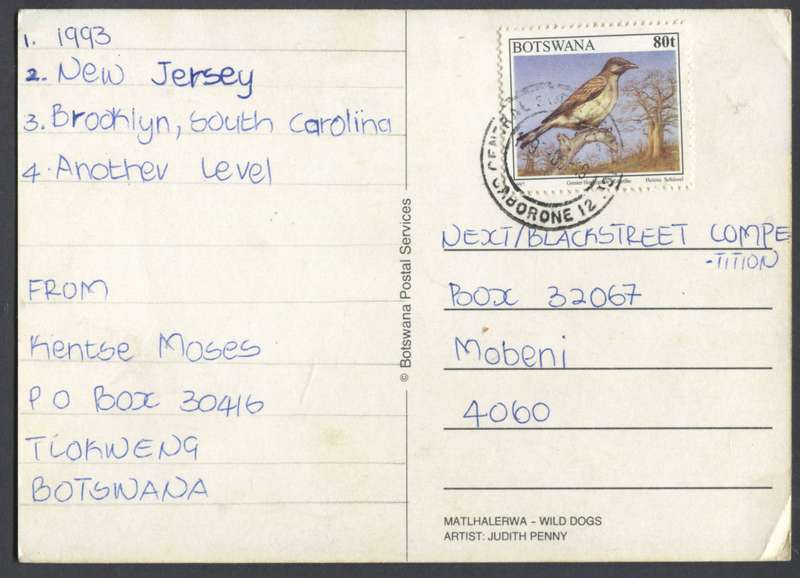 1. 1993
2. New Jersey
3. Brooklyn, South Carolina
4. Another Level
FROM
Kentse Moses
P O BOX 30416
TLOKWENG
BOTSWANA
© Botswana Postal Services
BOTSWANA 80t
Helena Schüssel
CENTRAL
GABORONE 12
NEXT/BLACKSTREET COMPE
-TITION
BOX 32067
Mobeni
4060
MATLHALERWA – WILD DOGS
ARTIST: JUDITH PENNY